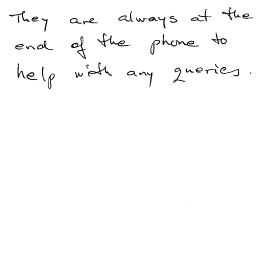 They are always at the
end of the phone to
help with any queries.